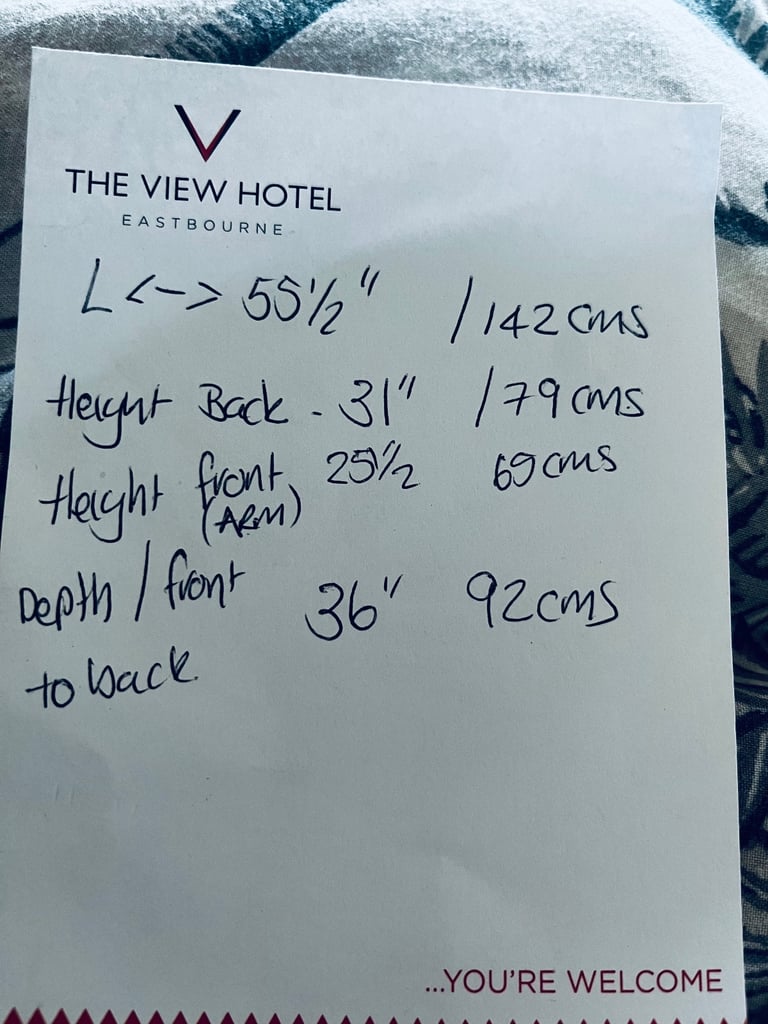 THE VIEW HOTEL
EASTBOURNE
L <-> 55 1/2" / 142 cms
Height Back - 31" / 79 cms
Height front 25 1/2 65 cms
(ARM)
Depth / front 36" 92 cms
to back.
...YOU'RE WELCOME